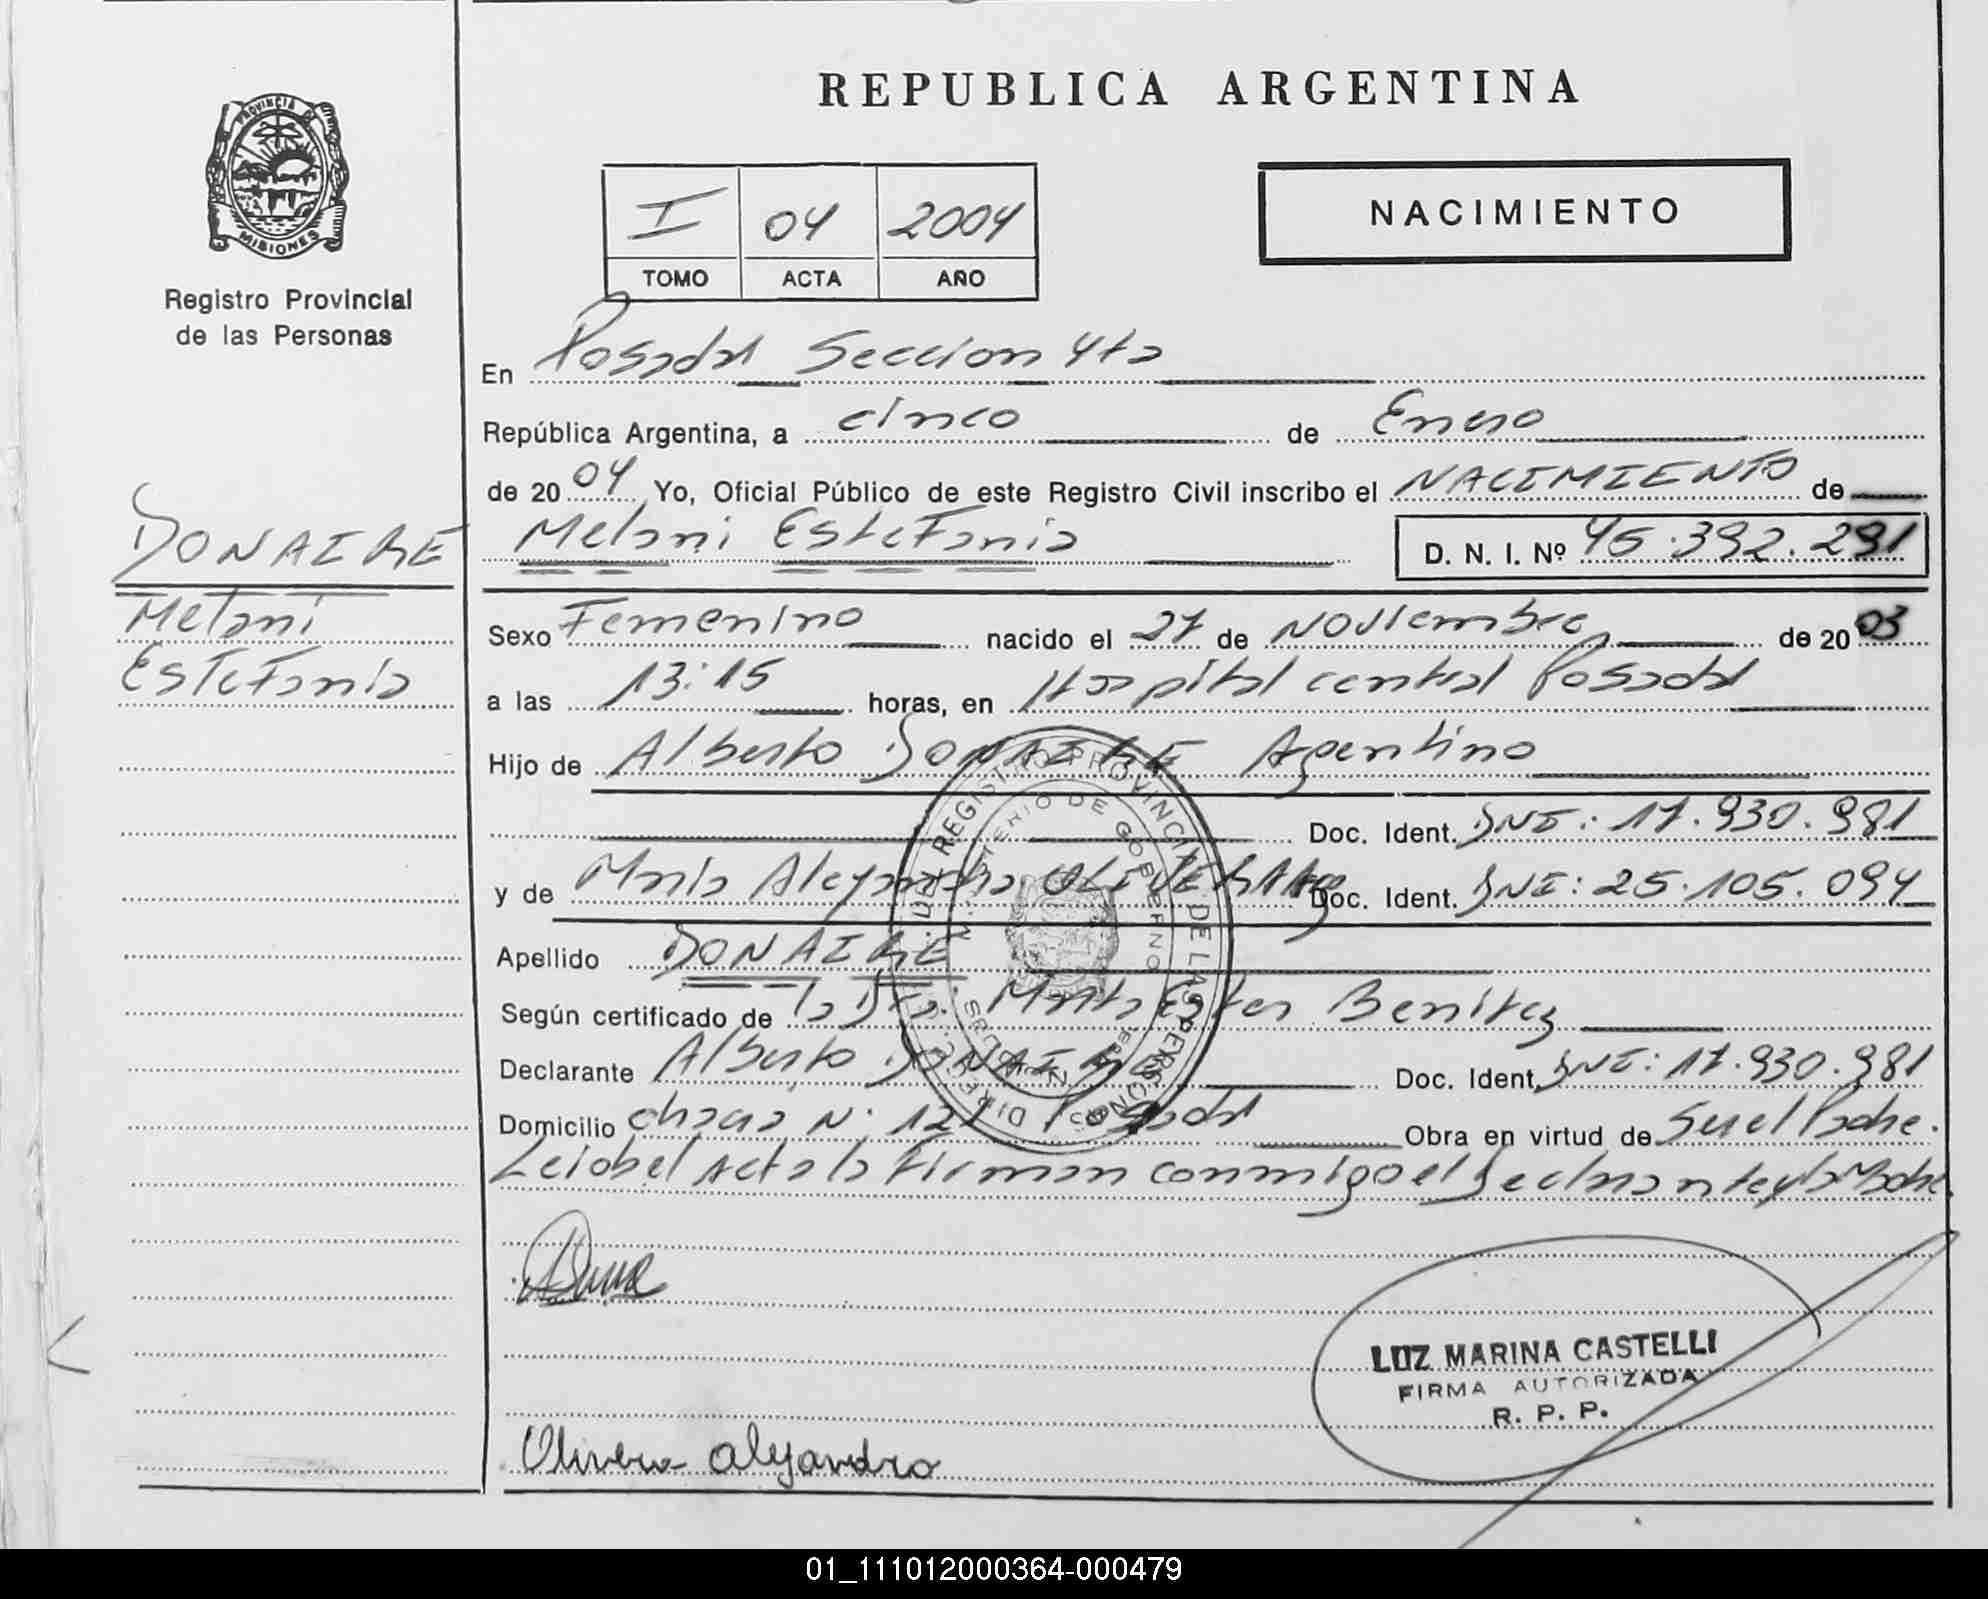 REPUBLICA ARGENTINA
PROVINCIA DE
MISIONES
Registro Provincial
de las Personas
I 04 2004
TOMO ACTA AÑO
NACIMIENTO
En Posadas Seccion 4ta
República Argentina, a cinco de Enero
de 2004 Yo, Oficial Público de este Registro Civil inscribo el NACIMIENTO de
DONAIRE
Melani
Estefania
Melani Estefania D. N. I. Nº 45.392.291
Sexo Femenino nacido el 27 de Noviembre de 2003
a las 13:15 horas, en Hospital central Posadas
Hijo de Alberto DONAIRE Argentino
Doc. Ident. DNI: 17.930.981
y de María Alejandra Doc. Ident. DNI: 25.105.094
Apellido DONAIRE
Según certificado de la Dra. Ester Benitez
Declarante Alberto DONAIRE Doc. Ident. DNI: 17.930.981
Domicilio chacra N° 121 Posadas Obra en virtud de Ser el Padre.
Leiobel Acta la Firman conmigo el Declarante y la Madre.
DIRECC. DEL REGISTRO PROVINCIAL DE LAS PERSONAS
MINISTERIO DE GOBIERNO
LUZ MARINA CASTELLI
FIRMA AUTORIZADA
R. P. P.
Olivera Alejandra
01_111012000364-000479